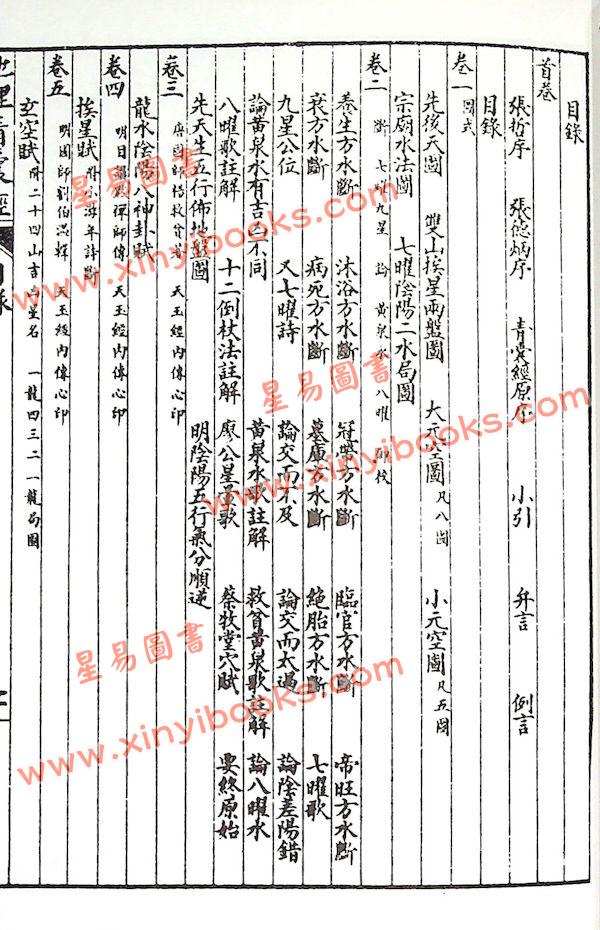 目錄
首卷
張哲序 張德炳序 青囊經原序 小引 弁言 例言
目錄
卷一 圖式
先後天圖 雙山挨星兩盤圖 大元空圖 凡八圖 小元空圖 凡五圖
宗廟水法圖 七曜陰陽二水局圖
卷二 斷 七曜九星 論 黃泉水 八曜 倒杖
養生方水斷 沐浴方水斷 冠帶方水斷 臨官方水斷 帝旺方水斷
衰方水斷 病死方水斷 墓庫方水斷 絕胎方水斷 七曜歌
九星公位 又七曜詩 論交而不及 論交而太過 論陰差陽錯
論黃泉水有吉凶不同 黃泉水歌註解 救貧黃泉歌註解 論八曜水
八曜歌註解 十二倒杖法註解 廖公星歌 蔡牧堂穴賦 要終原始
先天生五行佈地盤圖 明陰陽五行氣分順逆
卷三 唐國師楊救貧 天玉經內傳心印
龍水陰陽八神卦賦
卷四 明目禪師傳 天玉經內傳心印
挨星賦 附小游年詩斷
卷五 明國師劉伯溫輯 天玉經內傳心印
玄空賦 附二十四山吉凶星名 一龍四三二一龍局圖
地理青囊經 目錄
星易圖書
www.xinyibooks.com
星易圖書
www.xinyibooks.com
星易圖書
www.xinyibooks.com
星易圖書
www.xinyibooks.com